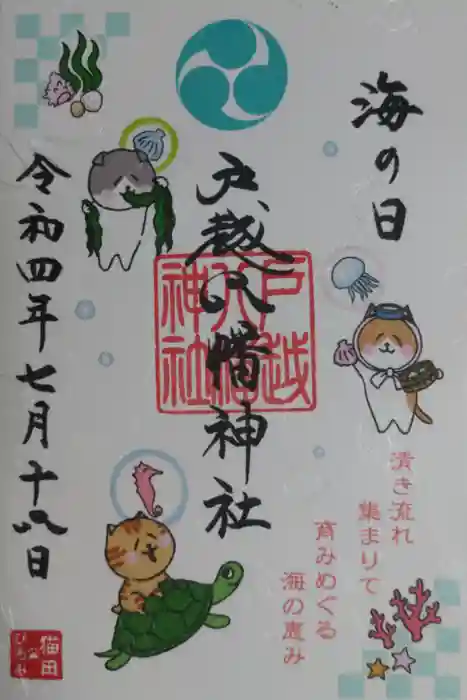 海の日
戸越八幡神社
戸越
八幡
神社
令和四年七月十八日
清き流れ
集まりて
育みめぐる
海の恵み
猫田